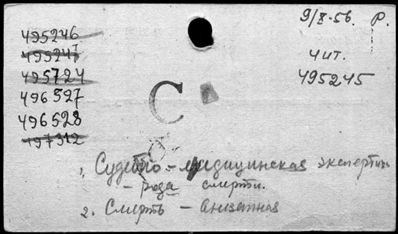 9/X-56. Р.
495246
чит.
495247
495245
495724
С
496527
496528
497312
1, Судебно-медицинская экспертиза
- рода смерти.
2. Смерть - внезапная